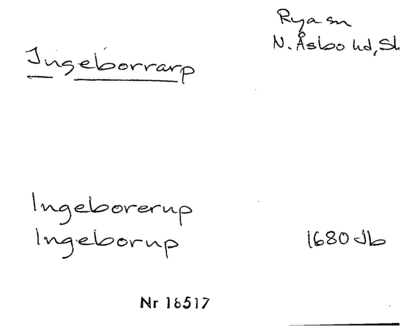 Rya sn
N. Åsbo hd, Sk
Ingeborrarp
Ingeborerup
Ingeborup 1680 Jb
Nr 16517